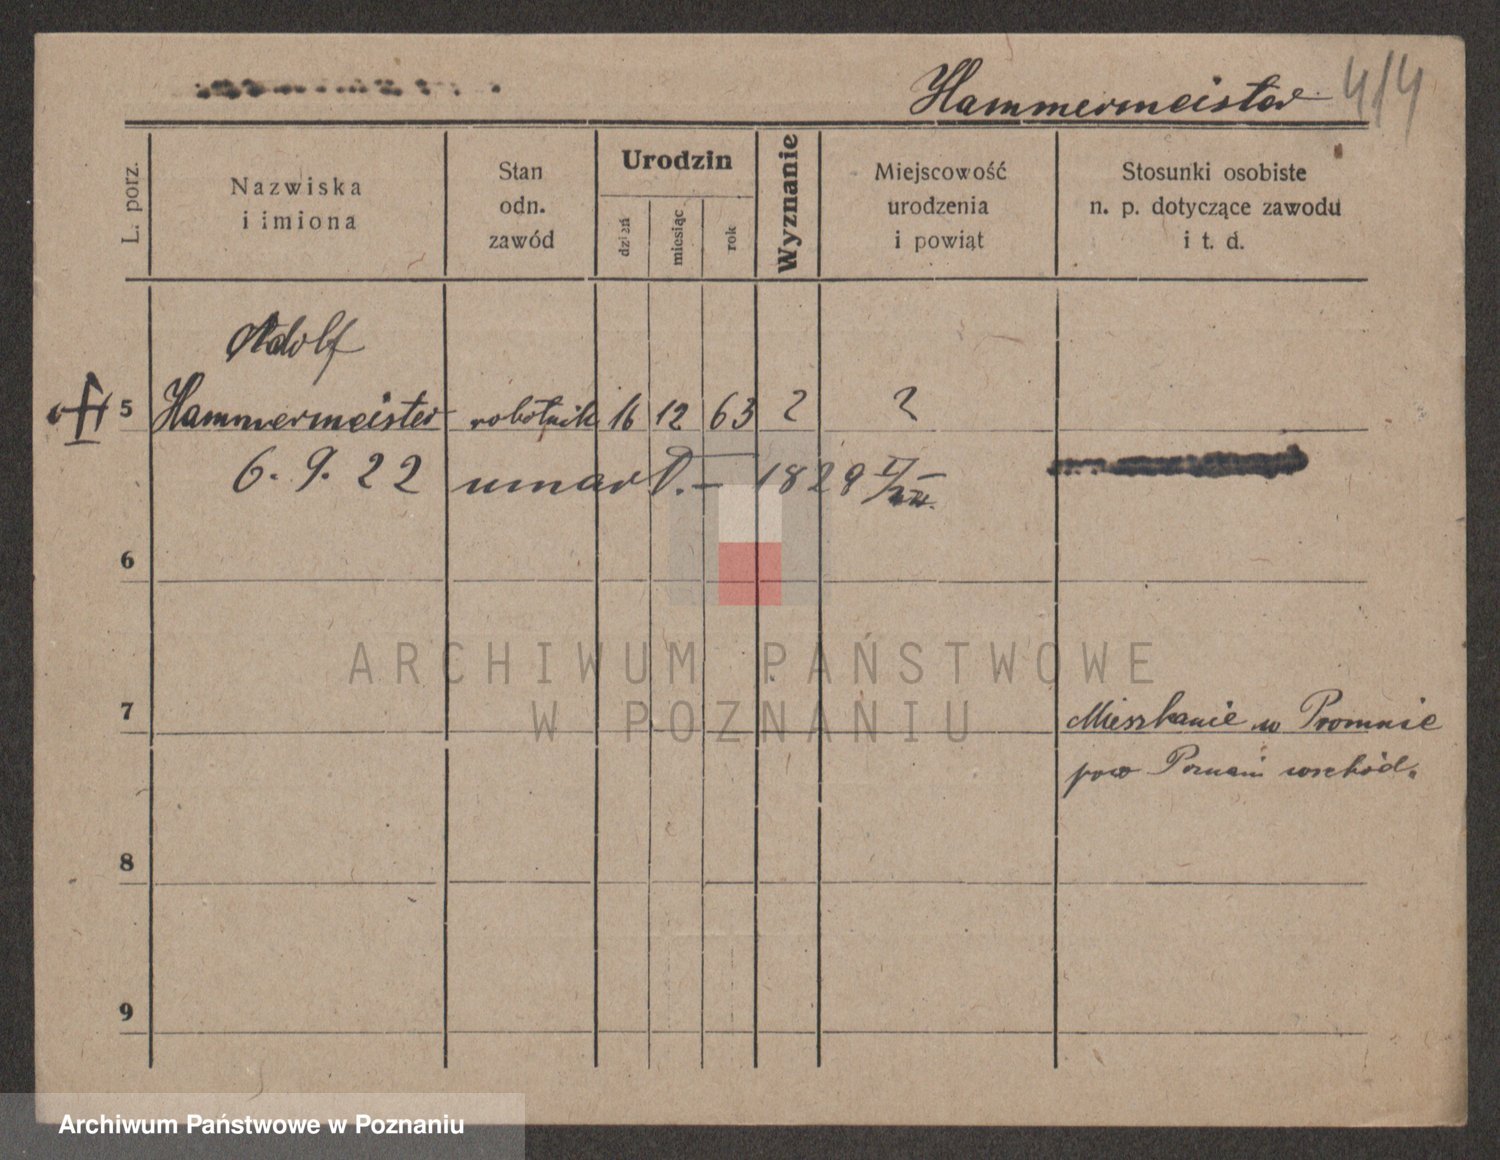 Hammermeister 4/4
L. porz.
Nazwiska
i imiona
Stan
odn.
zawód
Urodzin
dzień
miesiąc
rok
Wyznanie
Miejscowość
urodzenia
i powiąt
Stosunki osobiste
n. p. dotyczące zawodu
i t. d.
Adolf
5 Hammermeister robotnik 16 12 63 ? ?
6. 9. 22 umarł. – 1829
6
7
Mieszkanie w Promnie
pow Poznań wschód.
8
9
ARCHIWUM PAŃSTWOWE
W POZNANIU
Archiwum Państwowe w Poznaniu